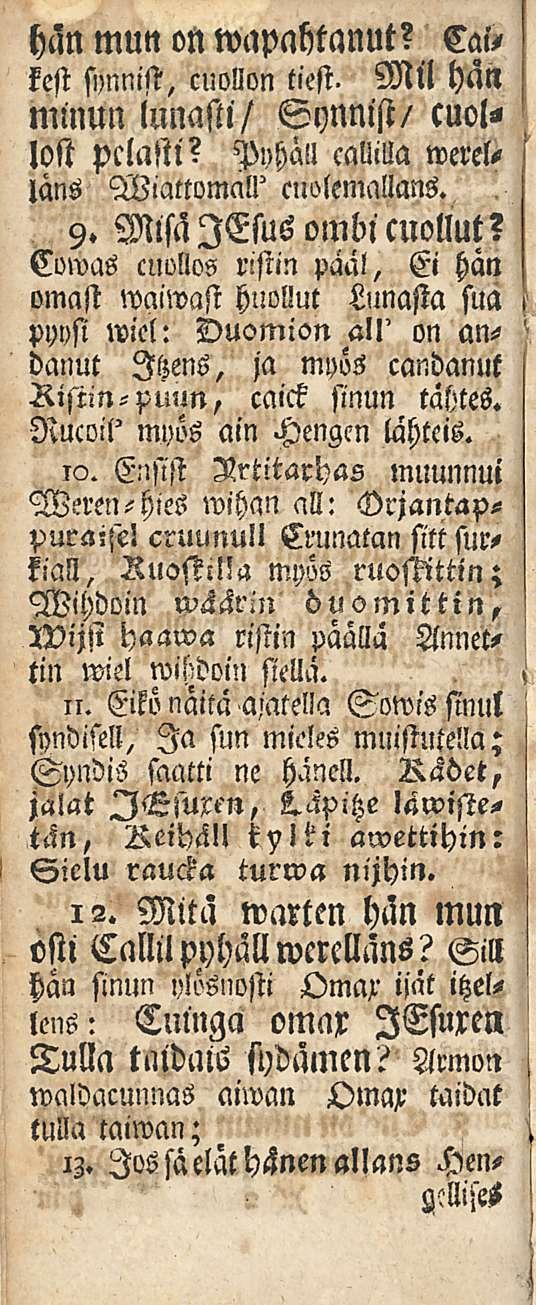 hän mun on wapahtanut? Cai⸗
kest synnist, cuollon tiest. Mil hän
minun lunasti/ Synnist/ cuol⸗
lost pelasti? Pyhäll callilla werel⸗
läns Wiattomall' cuolemallans.
9. Misä JEsus ombi cuollut?
Cowas cuollos ristin pääl, Ei hän
omast waiwast huollut Lunasta sua
pyysi wiel: Duomion all' on an⸗
danut Itzens, ja myös candanut
Ristin⸗puun, caick sinun tähtes.
Rucoil' myös ain Hengen lähteis.
10. Ensist Yrtitarhas muunnui
Weren⸗hies wihan all: Orjantap⸗
puraisel cruunull Crunatan sitt sur⸗
kiall, Ruoskilla myös ruoskittin;
Wihdoin wäärin duomittin,
Wijsi haawa ristin päällä Annet⸗
tin wiel wihdoin siellä.
11. Eikö näitä ajatella Sowis sinul
syndisell, Ja sun mieles muistutella;
Syndis saatti ne hänell. Kädet,
jalat JEsuxen, Läpitze läwiste⸗
tän, Keihäll kylki awettihin:
Sielu raucka turwa nijhin.
12. Mitä warten hän mun
osti Callil pyhäll werelläns? Sill
hän sinun ylösnosti Omax ijät itzel⸗
lens: Cuinga omax JEsuxen
Tulla taidais sydämen? Armon
waldacunnas aiwan Omax taidat
tulla taiwan;
13. Jos sä elät hänen allans Hen⸗
gellises